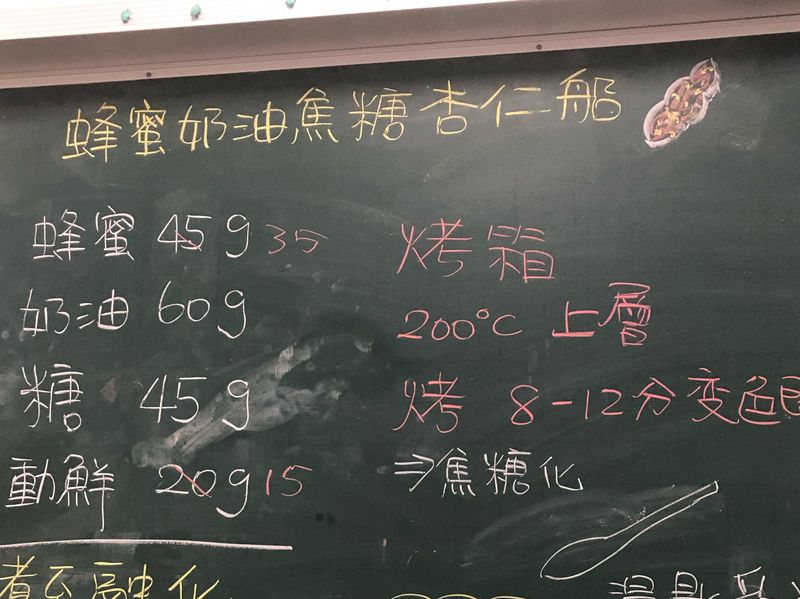 蜂蜜奶油焦糖杏仁船
蜂蜜 45g 35
奶油 60g
糖 45g
動鮮 20g 15
煮至融化
烤箱
200°C 上層
烤 8-12分变色
⇒焦糖化